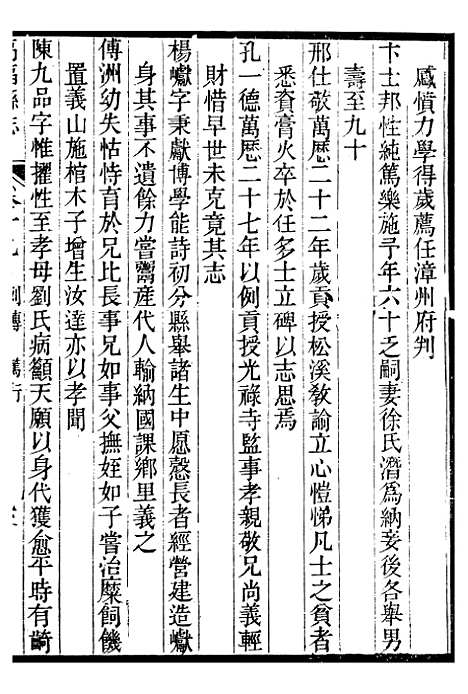 感憤力學得歲薦任漳州府判
卞士邦性純篤樂施予年六十乏嗣妻徐氏潛爲納妾後各舉男
壽至九十
邢仕敬萬歷二十二年歲貢授松溪敎諭立心愷悌凡士之貧者
悉資膏火卒於任多士立碑以志思焉
孔一德萬歷二十七年以例貢授光祿寺監事孝親敬兄尚義輕
財惜早世未克竟其志
楊巘字秉獻博學能詩初分縣舉諸生中愿慤長者經營建造巘
身其事不遺餘力嘗鬻產代人輸納國課鄉里義之
傅洲幼失怙恃育於兄比長事兄如事父撫姪如子嘗治糜飼饑
置義山施棺木子增生汝達亦以孝聞
陳九品字惟擢性至孝母劉氏病籲天願以身代獲愈平時有齮
縣志
列傳 篤行